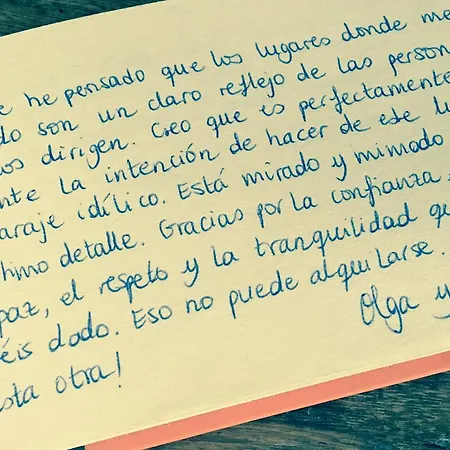 e he pensado que los lugares donde me
do son un claro reflejo de las person
os dirigen. Creo que es perfectamente
nte la intención de hacer de ese lu
araje idílico. Está mirado y mimado
timo detalle. Gracias por la confianza,
paz, el respeto y la tranquilidad que
éis dado. Eso no puede alquilarse.
sta otra! Olga y